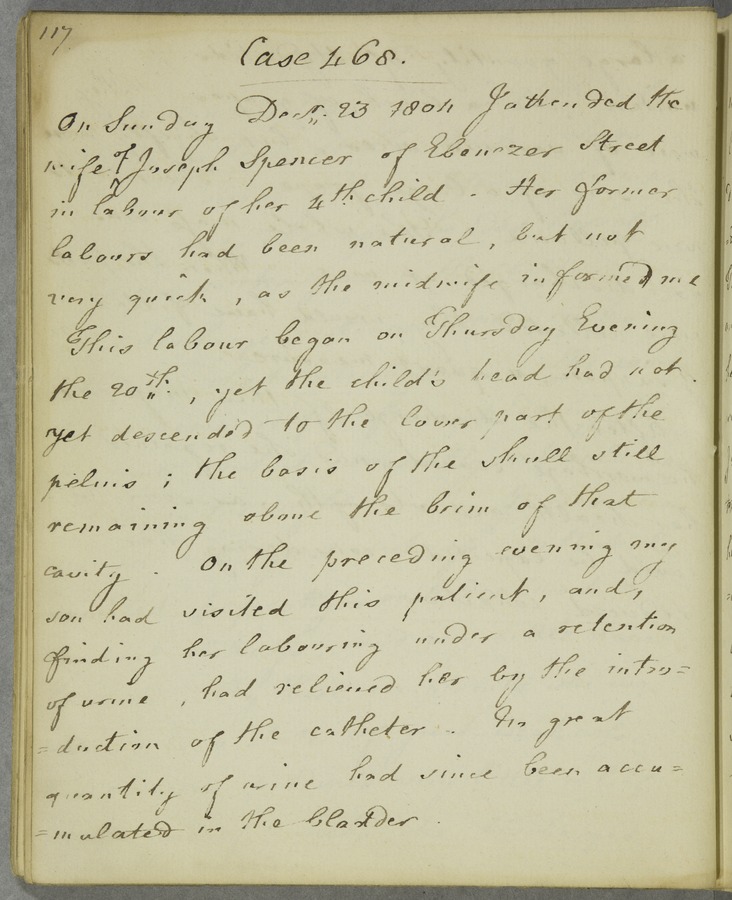 117
Case 468.
On Sunday Decr. 23 1804 I attended the
wife of Joseph Spencer of Ebenezer Street
in labour of her 4th child. Her former
labours had been natural, but not
very quick, as the midwife informed me
This labour began on Thursday Evening
the 20th, yet the child's head had not
yet descended to the lower part of the
pelvis; the basis of the skull still
remaining above the brim of that
cavity. On the preceding evening my
son had visited this patient, and,
finding her labouring under a retention
of urine, had relieved her by the intro=
=duction of the catheter. No great
quantity of urine had since been accu=
=mulated in the bladder.